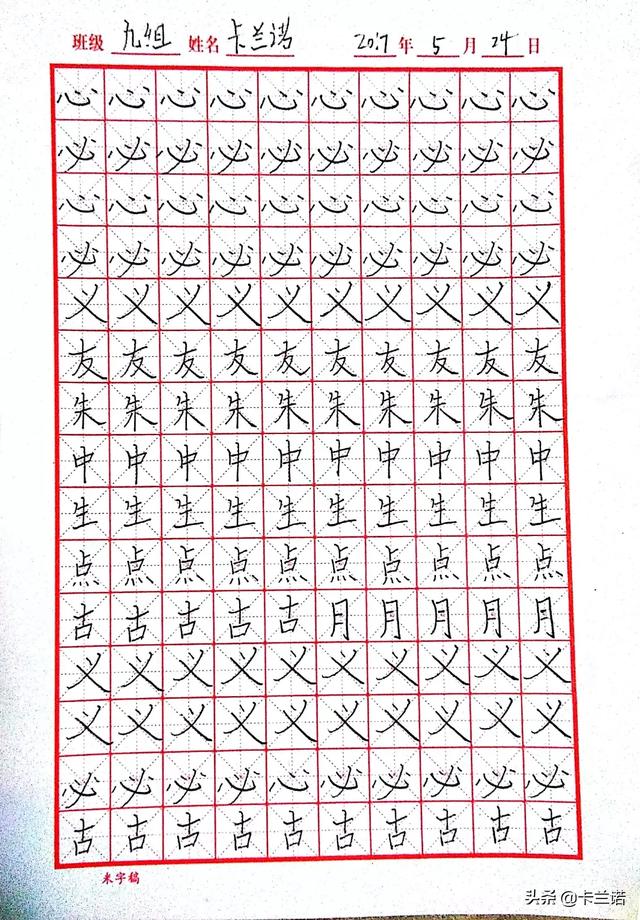 班级 九组 姓名 卡兰诺 2017 年 5 月 24 日
心心心心心心心心心心
必必必必必必必必必必
心心心心心心心心心心
必必必必必必必必必必
义义义义义义义义义义
友友友友友友友友友友
朱朱朱朱朱朱朱朱朱朱
中中中中中中中中中中
生生生生生生生生生生
点点点点点点点点点点
古古古古古月月月月月
义义义义义义义义义义
义义义义义义义义义义
必必必必心必必必必必
古古古古古古古古古古
米字稿
头条 @卡兰诺